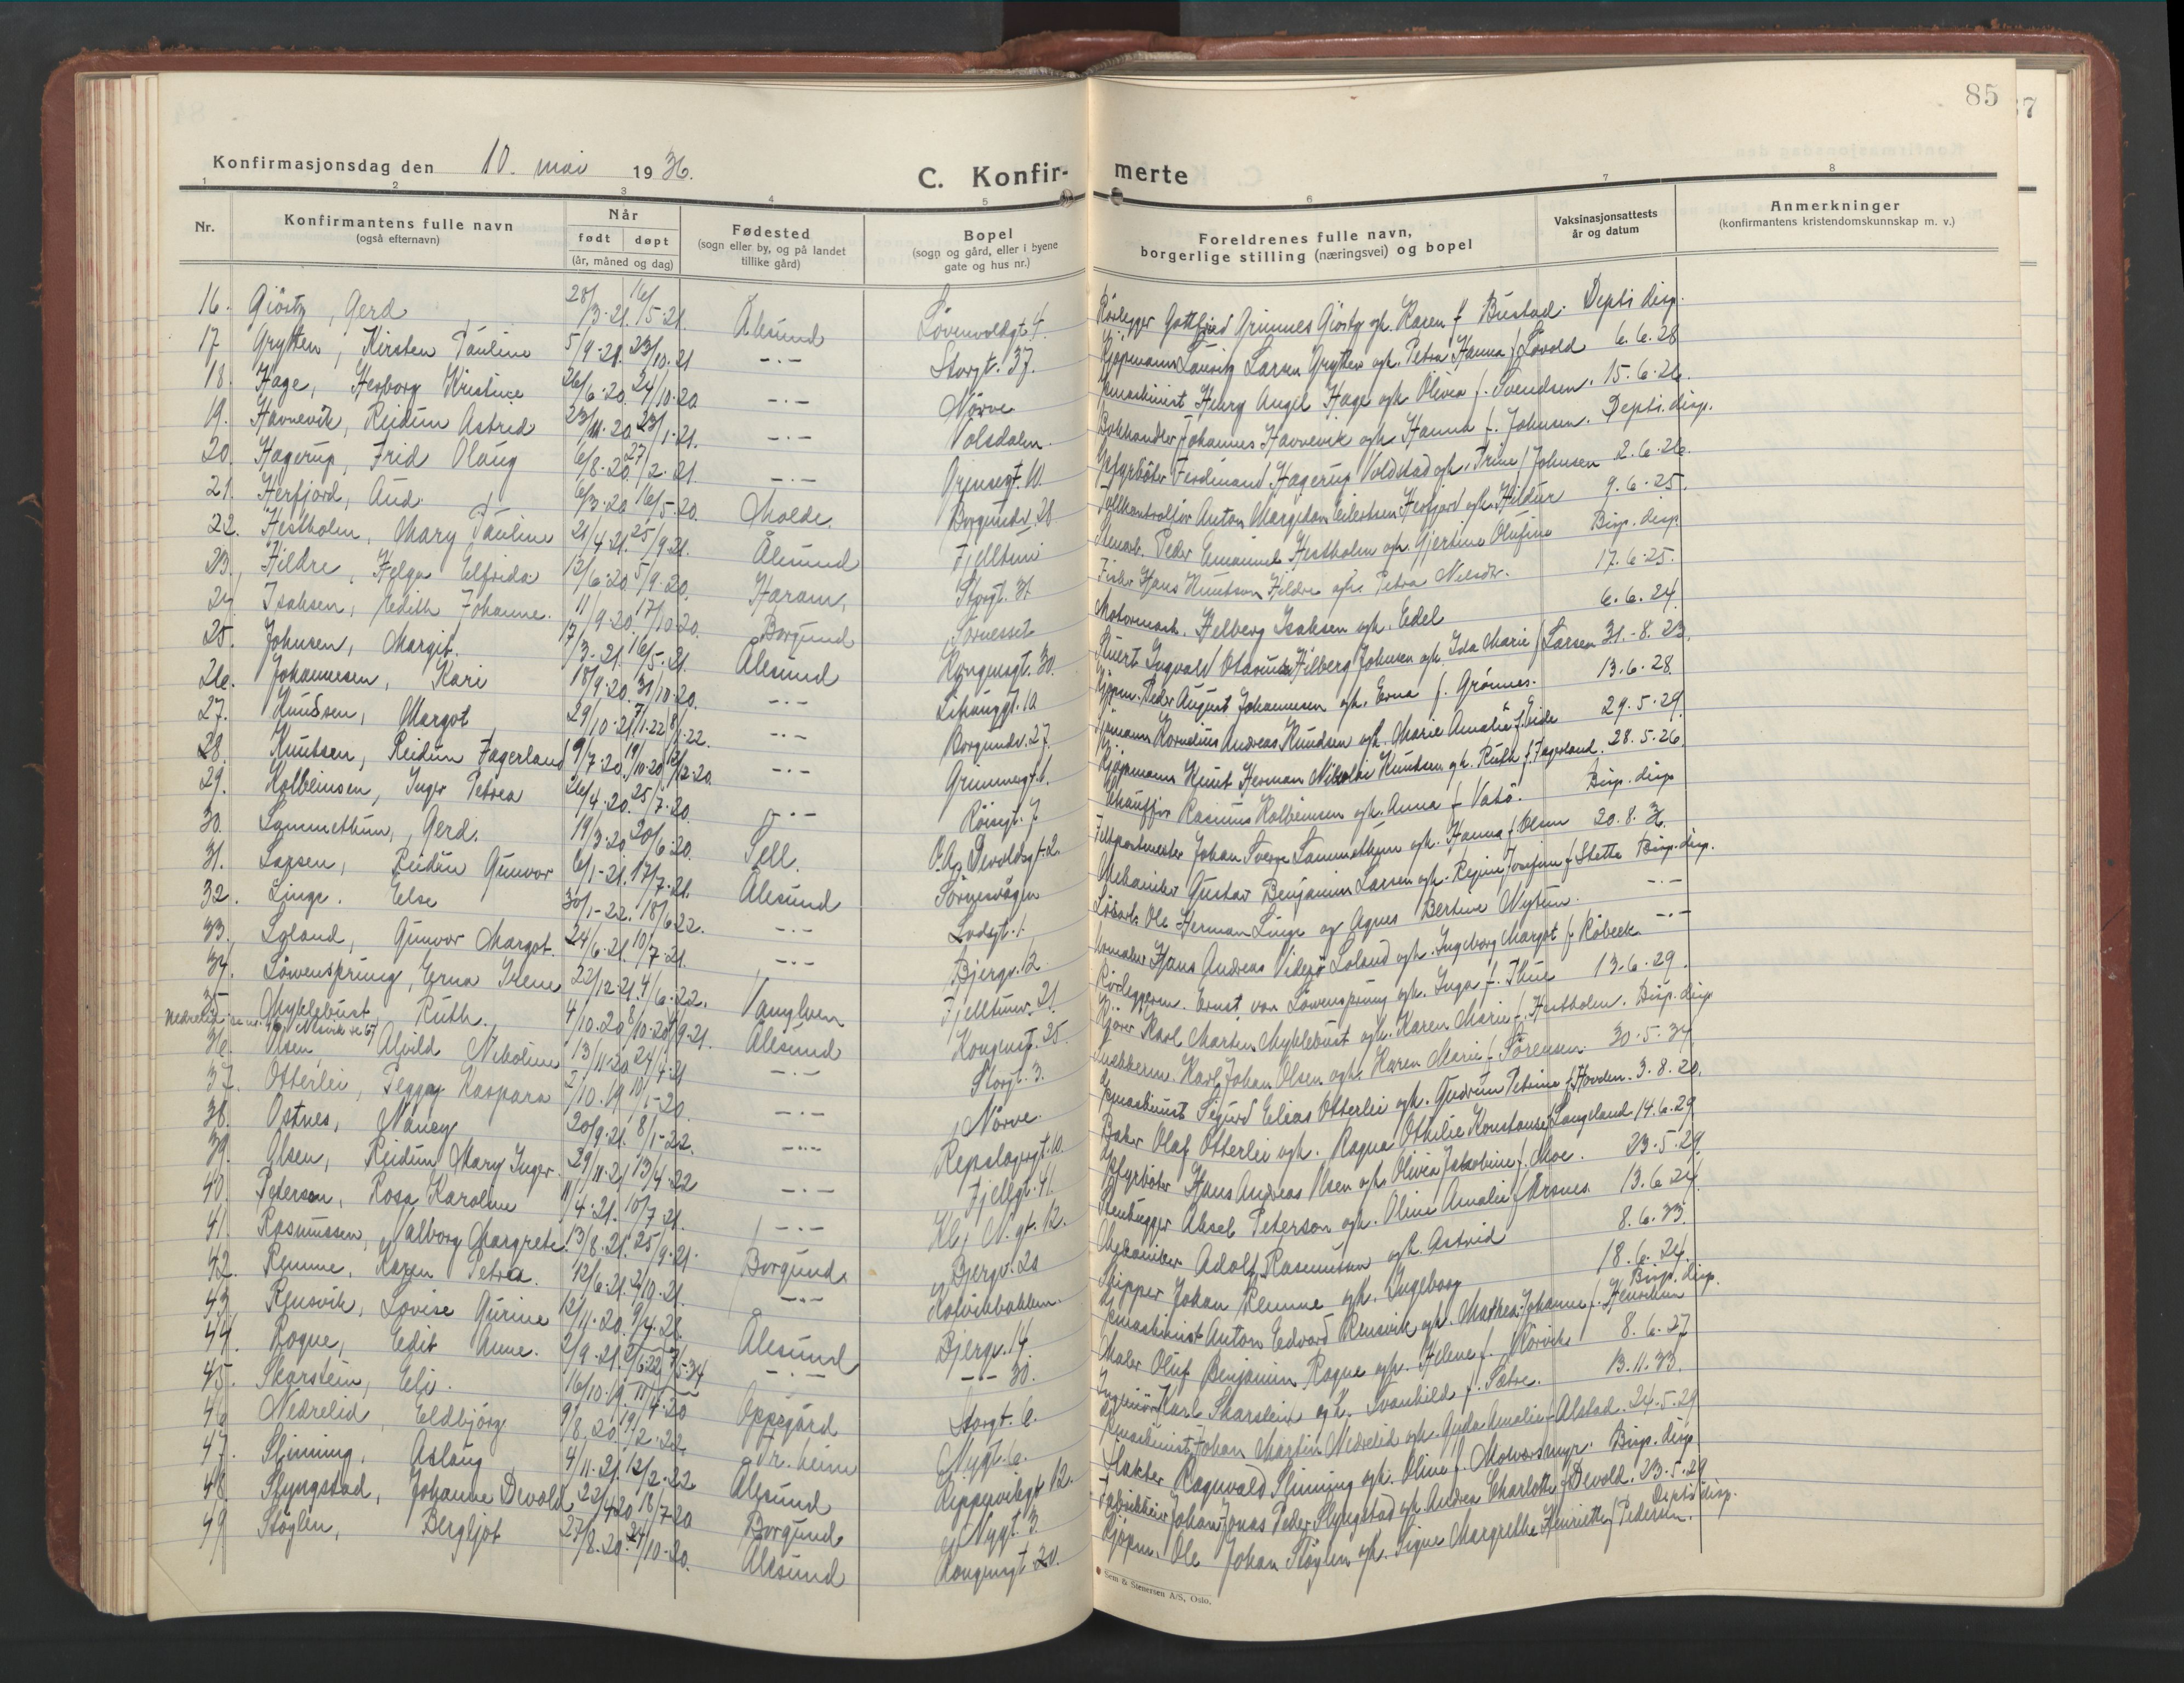 85
Konfirmasjonsdag den 10. mai 1936. C. Konfir- merte
1 2 3 4 5 6 7 8
Nr. Konfirmantens fulle navn (også efternavn) Når født døpt (år, måned og dag) Fødested (sogn eller by, og på landet tillike gård) Bopel (sogn og gård, eller i byene gate og hus nr.) Foreldrenes fulle navn, borgerlige stilling (næringsvei) og bopel Vaksinasjonsattests år og datum Anmerkninger (konfirmantens kristendomskunnskap m. v.)
16. Giørtz, Gerd 28/3-21. 16/5-21. Ålesund Løvenvoldgt. 4. Rørlegger Gottfried Grimnes Giørtz og h. Karen f. Bustad. Depts disp.
17 Grytten, Kirsten Pauline 5/9-21. 23/10-21 -"- Storgt. 37. Kjøpmann Lauritz Larsen Grytten og h. Petra Hanna f. Løvold 6.6.28
18. Hage, Herborg Kristine 26/6-20. 24/10-20 -"- Nørve maskinist Henry Angel Hage og h. Olivia f. Svendsen. 15.6.26.
19. Havnevik, Reidun Astrid 23/11-20. 23/1-21. -"- Volsdalen. Bokhandler Johannes Havnevik og h. Hanna f. Johnsen. Depts. disp.
20. Hagerup, Frid Olaug 6/8-20. 27/2-21. -"- Grensegt. 10. Fyrbøter Ferdinand Hagerup Voldstad og h. Trine f. Johnsen 2.6.26.
21. Herfjord, Aud. 6/3-20 16/5-20. Molde. Borgundv. 28 Tollkontrollør Anton Margido Eilertsen Herfjord og h. Hildur 9.6.25.
22. Hestholm, Mary Pauline 21/4-21. 25/9-21. Ålesund Fjelltun Peder Emanuel Hestholm og h. Gjertine Olufine Bisp. disp
23. Hildre, Helga Elfrida 12/6-20. 5/9-20. Haram, Storgt. 31. Fisker Hans Knutson Hildre og h. Petra Nilsdtr. 17.6.25.
24. Isaksen, Edith Johanne. 11/9-20. 17/10-20. Borgund Sørnesset Motormask. Helberg Isaksen og h. Edel 6.6.24.
25. Johnsen, Margit. 17/3-21. 16/5-21. Ålesund Kongensgt. 30. Ingvald Hilberg Johnsen og h. Ida Marie f. Larsen 31.-8.23.
26. Johannesen, Kari 18/9-20. 31/10-20. -"- Lihauggt. 10 Kjøpm. Peder August Johannesen og h. Erna f. Grønnes. 13.6.28.
27. Knudsen, Margot 29/10-21 -"- Borgundv. 27. Sjømann Kornelius Andreas Knudsen og h. Marie Amalie f. Eide 29.5.29.
28. Knutsen, Reidun Fagerland 9/7-20. 19/10-20 -"- Grimmergt. 6. Kjøpmann Knut Herman Nikolai Knutsen og h. Ruth f. Fagerland. 28.5.26.
29. Kolbeinsen, Inger Petrea 26/4-20. 25/7-20. -"- Røisgt. 7 Chauffør Rasmus Kolbeinsen og h. Anna f. Vatø. Bisp. disp
30. Lammethun, Gerd. 19/3-20 20/6-20. Sell. O.A. Devoldsgt. 2. Feltpostmester Johan Sverge Lammethun og h. Hanna f. Olsen 20.8.31.
31. Larsen, Reidun Gunvor 6/1-21. 17/7-21. Ålesund Sørnesvågen Mekaniker Gustav Benjamin Larsen og h. Regine Josefine f. Stette Bisp. disp.
32. Linge. Else 30/1-22. 18/6-22. -"- Lodsgt. 1. Løsarb. Ole Herman Linge og Agnes Bertine Nytun. -"-
33. Loland, Gunvor Margot. 24/6-21. 10/7-21. -"- Bjergv. 12. Hans Andreas Videsjø Loland og h. Ingeborg Margot f. Røbeck -"-
34. Løwensprung, Erna Irene 22/12-21. 4/6-22. Vanylven Fjelltunv. 21. Rørleggerm. Ernst von Løwensprung og h. Inga f. Thue 13.6.29.
35 Myklebust, Ruth. 4/10.20 Ålesund Kongensgt. 25. Kjører Karl Martin Myklebust og h. Karen Marie f. Hestholm. Bisp. disp
Nedrelid se nr. 46
36. Olsen, Alvild Nikoline 13/11-20 24/4-21 -"- Storgt. 3. Snekkerm. Karl Johan Olsen og h. Karen Marie f. Sørensen. 30.5.34
37. Otterlei, Peggy Kaspara 2/10.19 10/1-20. -"- Nørve. maskinist Sigurd Elias Otterlei og h. Gudrun Petrine f. Hovden. 3.8.20.
38. Ostnes, Nancy 20/9-21. 8/1-22. -"- Repslagergt. 10. Baker Olaf Otterlei og h. Ragna Othilie Konstanse f. Langeland. 14.6.29
39. Olsen, Reidun Mary Inger. 29/11-21 13/4-22 -"- Fjellgt. 41. Fyrbøter Hans Andreas Olsen og h. Olivia Jakobine f. Moe. 23.5.29.
40. Peterson, Rosa Karoline 11/4-21. 10/7-21. -"- Kl. N. gt. 12. Stenhugger Aksel Peterson og h. Oline Amalie f. Årsnes. 13.6.24.
41. Rasmussen, Valborg Margrete. 13/8-21. 25/9-21. Borgund. Bjergv. 20 Mekaniker Adolf Rasmussen og h. Astrid 8.6.33.
42. Remme, Karen Petrea. 12/6-21. 2/10-21. -"- Kolvikbakken. Skipper Johan Remme og h. Ingeborg 18.6.24.
43. Rensvik, Lovise Gurine 12/11-20. 9/4-21. Ålesund Bjergv. 14. maskinist Anton Edvard Rensvik og h. Mathea Johanne f. Henriksen Bisp. disp.
44. Rogne, Edit Anne. 2/9-21. -"- -"- 30. Maler Oluf Benjamin Rogne og h. Helene f. Rørvik 8.6.27
45. Skarstein, Eli. 16/10.19. 11/4-20 Oppegård Storgt. 6. Ingeniør Karl Skarstein og h. Svanhild f. Sætre. 13.11.33.
46 Nedrelid, Eldbjørg 9/8.20 19/2-22 Tr.heim Nygt. 6. maskinist Johan Martin Nedrelid og h. Guda Amalie f. Alstad. 24.5.29
47. Slinning, Aslaug 4/11.21. 12/2-22 Ålesund Kippervikgt 12. Slakter Ragnvald Slinning og h. Oline f. Molværsmyr. Bisp. disp
48. Slyngstad, Johanne Devold, 22/4-20 18/7-20 Borgund Nygt. 13. Johan Jonas Peder Slyngstad og h. Andrea Charlotte f. Devold. 23.5.29
49 Støylen, Bergljot 27/8-20. 24/10-20. Ålesund Kongensgt 20. Kjøpm. Ole Johan Støylen og h. Signe Margrethe Henriette f. Pedersen. Depts disp.
Sem & Stenersen A/S, Oslo.